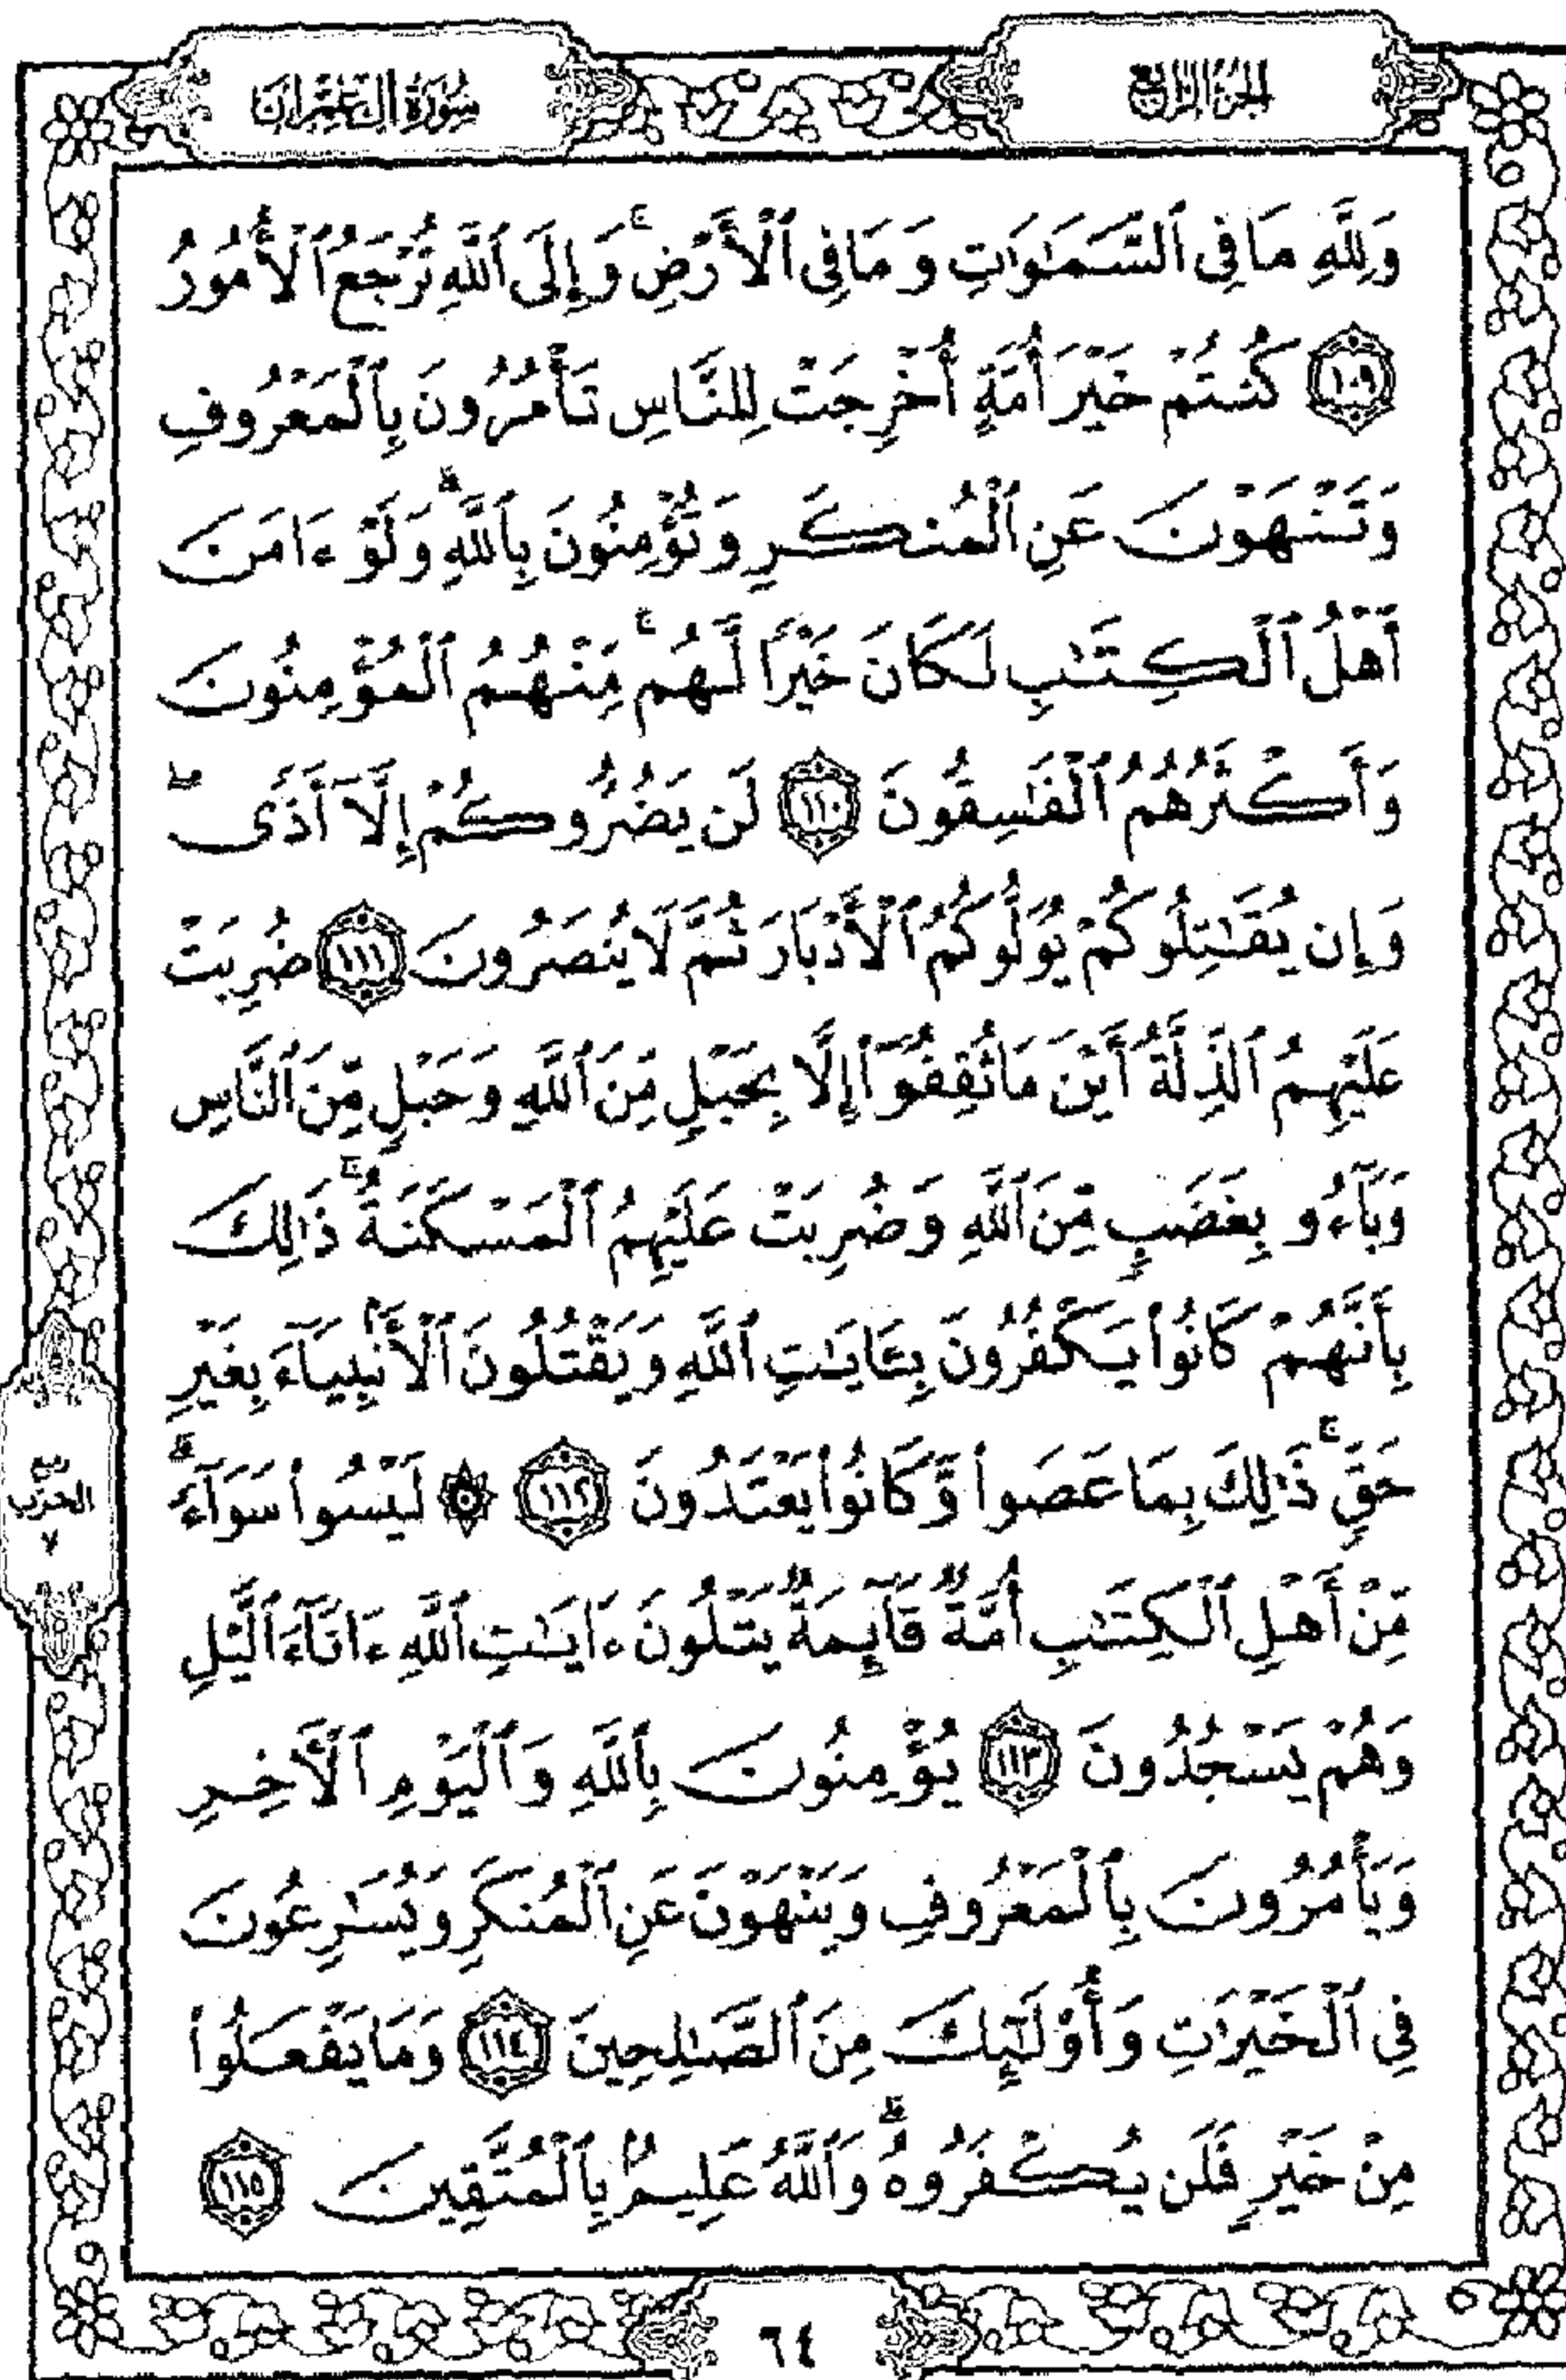 الجزء الرابع
سورة آل عمران
وَلِلَّهِ مَا فِى ٱلسَّمَـٰوَٰتِ وَمَا فِى ٱلْأَرْضِ ۚ وَإِلَى ٱللَّهِ تُرْجَعُ ٱلْأُمُورُ
١٠٩ كُنتُمْ خَيْرَ أُمَّةٍ أُخْرِجَتْ لِلنَّاسِ تَأْمُرُونَ بِٱلْمَعْرُوفِ
وَتَنْهَوْنَ عَنِ ٱلْمُنكَرِ وَتُؤْمِنُونَ بِٱللَّهِ ۗ وَلَوْ ءَامَنَ
أَهْلُ ٱلْكِتَـٰبِ لَكَانَ خَيْرًا لَّهُم ۚ مِّنْهُمُ ٱلْمُؤْمِنُونَ
وَأَكْثَرُهُمُ ٱلْفَـٰسِقُونَ ١١٠ لَن يَضُرُّوكُمْ إِلَّآ أَذًى ۖ
وَإِن يُقَـٰتِلُوكُمْ يُوَلُّوكُمُ ٱلْأَدْبَارَ ثُمَّ لَا يُنصَرُونَ ١١١ ضُرِبَتْ
عَلَيْهِمُ ٱلذِّلَّةُ أَيْنَ مَا ثُقِفُوٓا۟ إِلَّا بِحَبْلٍ مِّنَ ٱللَّهِ وَحَبْلٍ مِّنَ ٱلنَّاسِ
وَبَآءُو بِغَضَبٍ مِّنَ ٱللَّهِ وَضُرِبَتْ عَلَيْهِمُ ٱلْمَسْكَنَةُ ۚ ذَٰلِكَ
بِأَنَّهُمْ كَانُوا۟ يَكْفُرُونَ بِـَٔايَـٰتِ ٱللَّهِ وَيَقْتُلُونَ ٱلْأَنۢبِيَآءَ بِغَيْرِ
حَقٍّ ۚ ذَٰلِكَ بِمَا عَصَوا۟ وَّكَانُوا۟ يَعْتَدُونَ ١١٢ ۞ لَيْسُوا۟ سَوَآءً ۗ
مِّنْ أَهْلِ ٱلْكِتَـٰبِ أُمَّةٌ قَآئِمَةٌ يَتْلُونَ ءَايَـٰتِ ٱللَّهِ ءَانَآءَ ٱلَّيْلِ
وَهُمْ يَسْجُدُونَ ١١٣ يُؤْمِنُونَ بِٱللَّهِ وَٱلْيَوْمِ ٱلْـَٔاخِرِ
وَيَأْمُرُونَ بِٱلْمَعْرُوفِ وَيَنْهَوْنَ عَنِ ٱلْمُنكَرِ وَيُسَـٰرِعُونَ
فِى ٱلْخَيْرَٰتِ وَأُو۟لَـٰٓئِكَ مِنَ ٱلصَّـٰلِحِينَ ١١٤ وَمَا يَفْعَلُوا۟
مِنْ خَيْرٍ فَلَن يُكْفَرُوهُ ۗ وَٱللَّهُ عَلِيمٌۢ بِٱلْمُتَّقِينَ ١١٥
ربع
الحزب
٧
٦٤